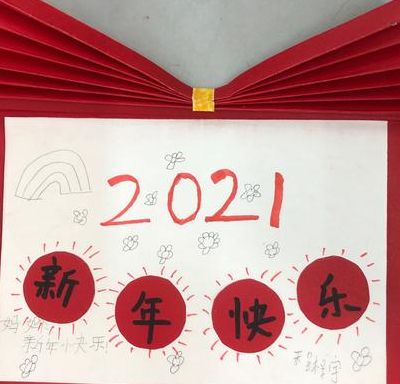 2021
新年快乐
妈妈:
新年快乐!